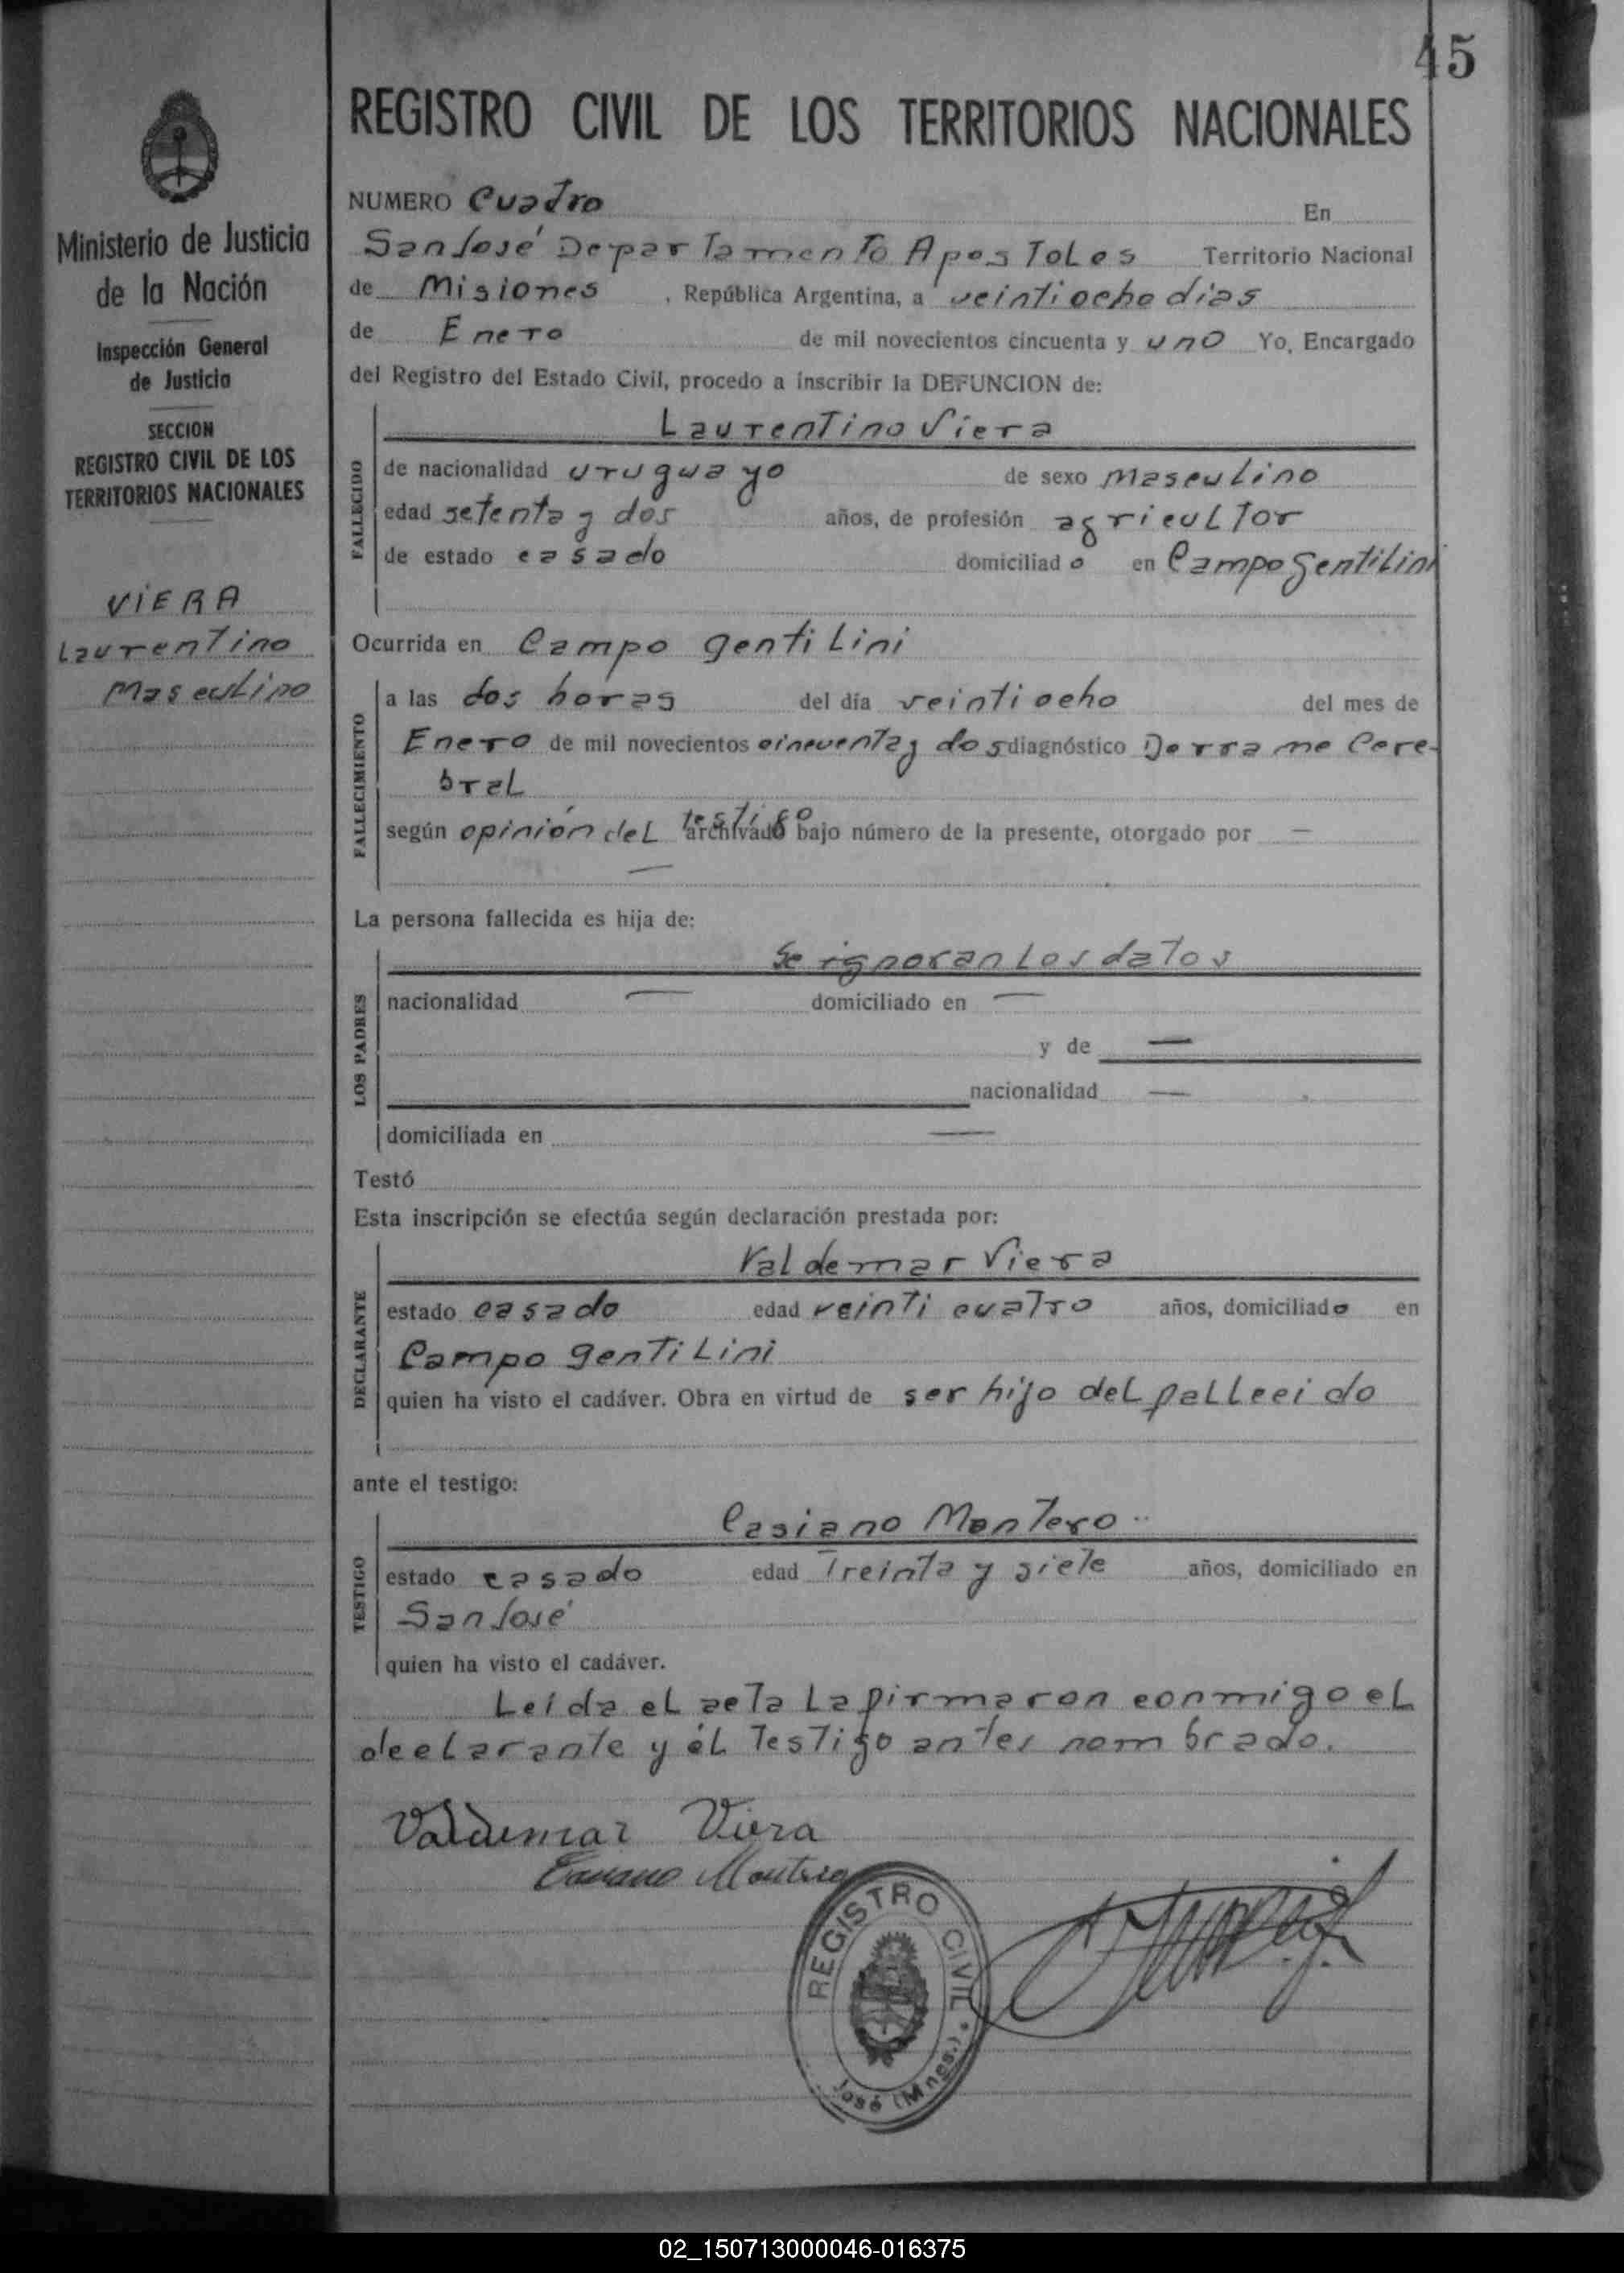 45
REGISTRO CIVIL DE LOS TERRITORIOS NACIONALES
Ministerio de Justicia
de la Nación
Inspección General
de Justicia
SECCION
REGISTRO CIVIL DE LOS
TERRITORIOS NACIONALES
VIERA
Laurentino
Masculino
NUMERO Cuatro En
San José Departamento Apostoles Territorio Nacional
de Misiones, República Argentina, a veintiocho dias
de Enero de mil novecientos cincuenta y uno Yo, Encargado
del Registro del Estado Civil, procedo a inscribir la DEFUNCION de:
FALLECIDO
Laurentino Viera
de nacionalidad uruguayo de sexo masculino
edad setenta y dos años, de profesión agricultor
de estado casado domiciliado en Campo gentilini
Ocurrida en Campo gentilini
FALLECIMIENTO
a las dos horas del día veintiocho del mes de
Enero de mil novecientos cincuenta y dos diagnóstico Derrame Cere-
bral
según opinión del testigo archivado bajo número de la presente, otorgado por —
—
La persona fallecida es hija de:
LOS PADRES
Se ignoran los datos
nacionalidad — domiciliado en —
y de —
nacionalidad —
domiciliada en —
Testó
Esta inscripción se efectúa según declaración prestada por:
DECLARANTE
Valdemar Viera
estado casado edad veinticuatro años, domiciliado en
Campo gentilini
quien ha visto el cadáver. Obra en virtud de ser hijo del fallecido
ante el testigo:
TESTIGO
Casiano Montero
estado casado edad Treinta y siete años, domiciliado en
San José
quien ha visto el cadáver.
Leída el acta la firmaron conmigo el
declarante y él testigo antes nombrado.
Valdemar Viera
Casiano Montero
REGISTRO CIVIL * José (Mnes.)
02_150713000046-016375